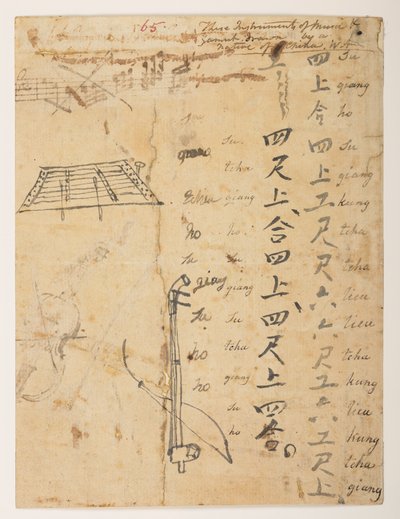 65
These Instruments of Music &
Gamut drawn by a
native of China
Su
giang
ho
su
giang
kung
tcha
tcha
lieu
lieu
tcha
kung
lieu
kung
tcha
giang
四上合四上工尺尺六六尺工六工尺上
上
四尺上合四上四尺上四合。
su
tcha
giang
ho
su
giang
su
tcha
giang
su
ho
su
ho
su
giang
su
ho
ho